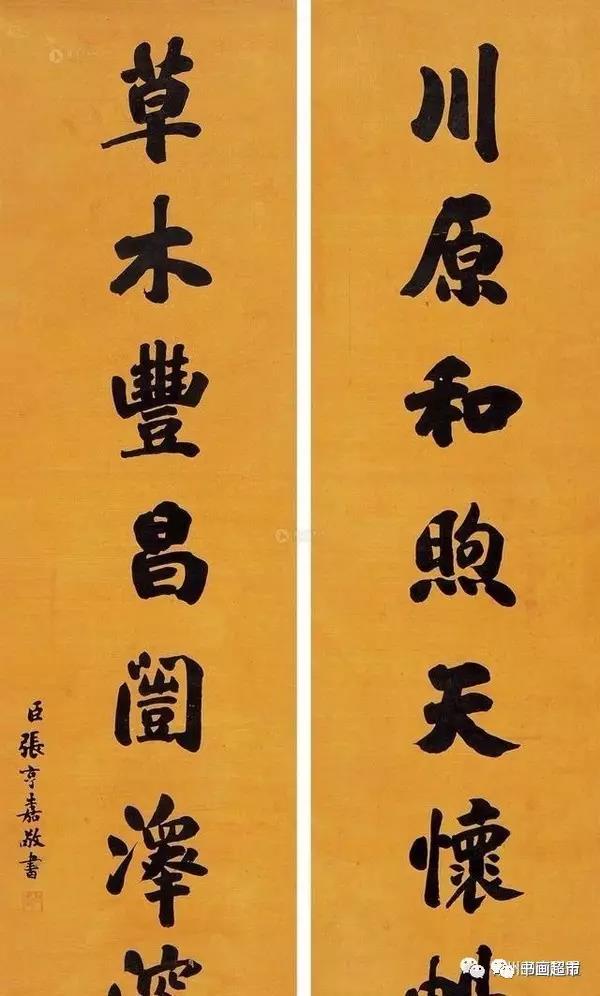 川原和煦天懷
草木豐昌闓澤
臣張亨嘉敬書
书画超市